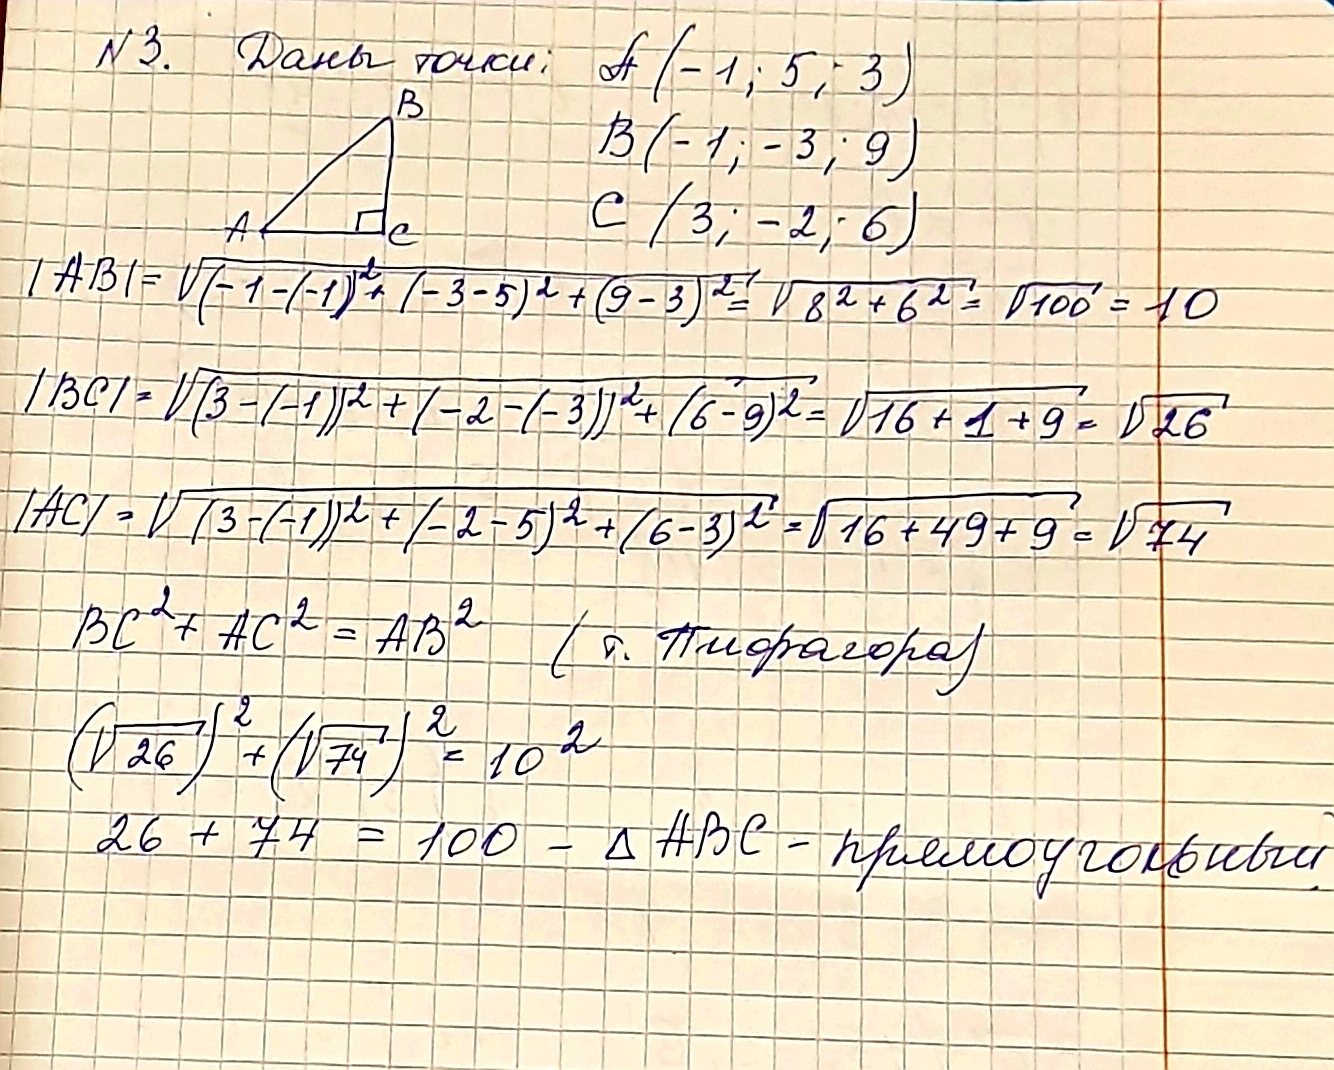 N3. Даны точки: A (-1; 5; 3)
B
B (-1; -3; 9)
A
C
C (3; -2; 6)
|AB| = √(-1-(-1)² + (-3-5)² + (9-3)² = √8² + 6² = √100 = 10
|BC| = √(3-(-1))² + (-2-(-3))² + (6-9)² = √16 + 1 + 9 = √26
|AC| = √(3-(-1))² + (-2-5)² + (6-3)² = √16 + 49 + 9 = √74
BC² + AC² = AB² (т. Пифрагора)
(√26)² + (√74)² = 10²
26 + 74 = 100 – Δ ABC – прямоугольный